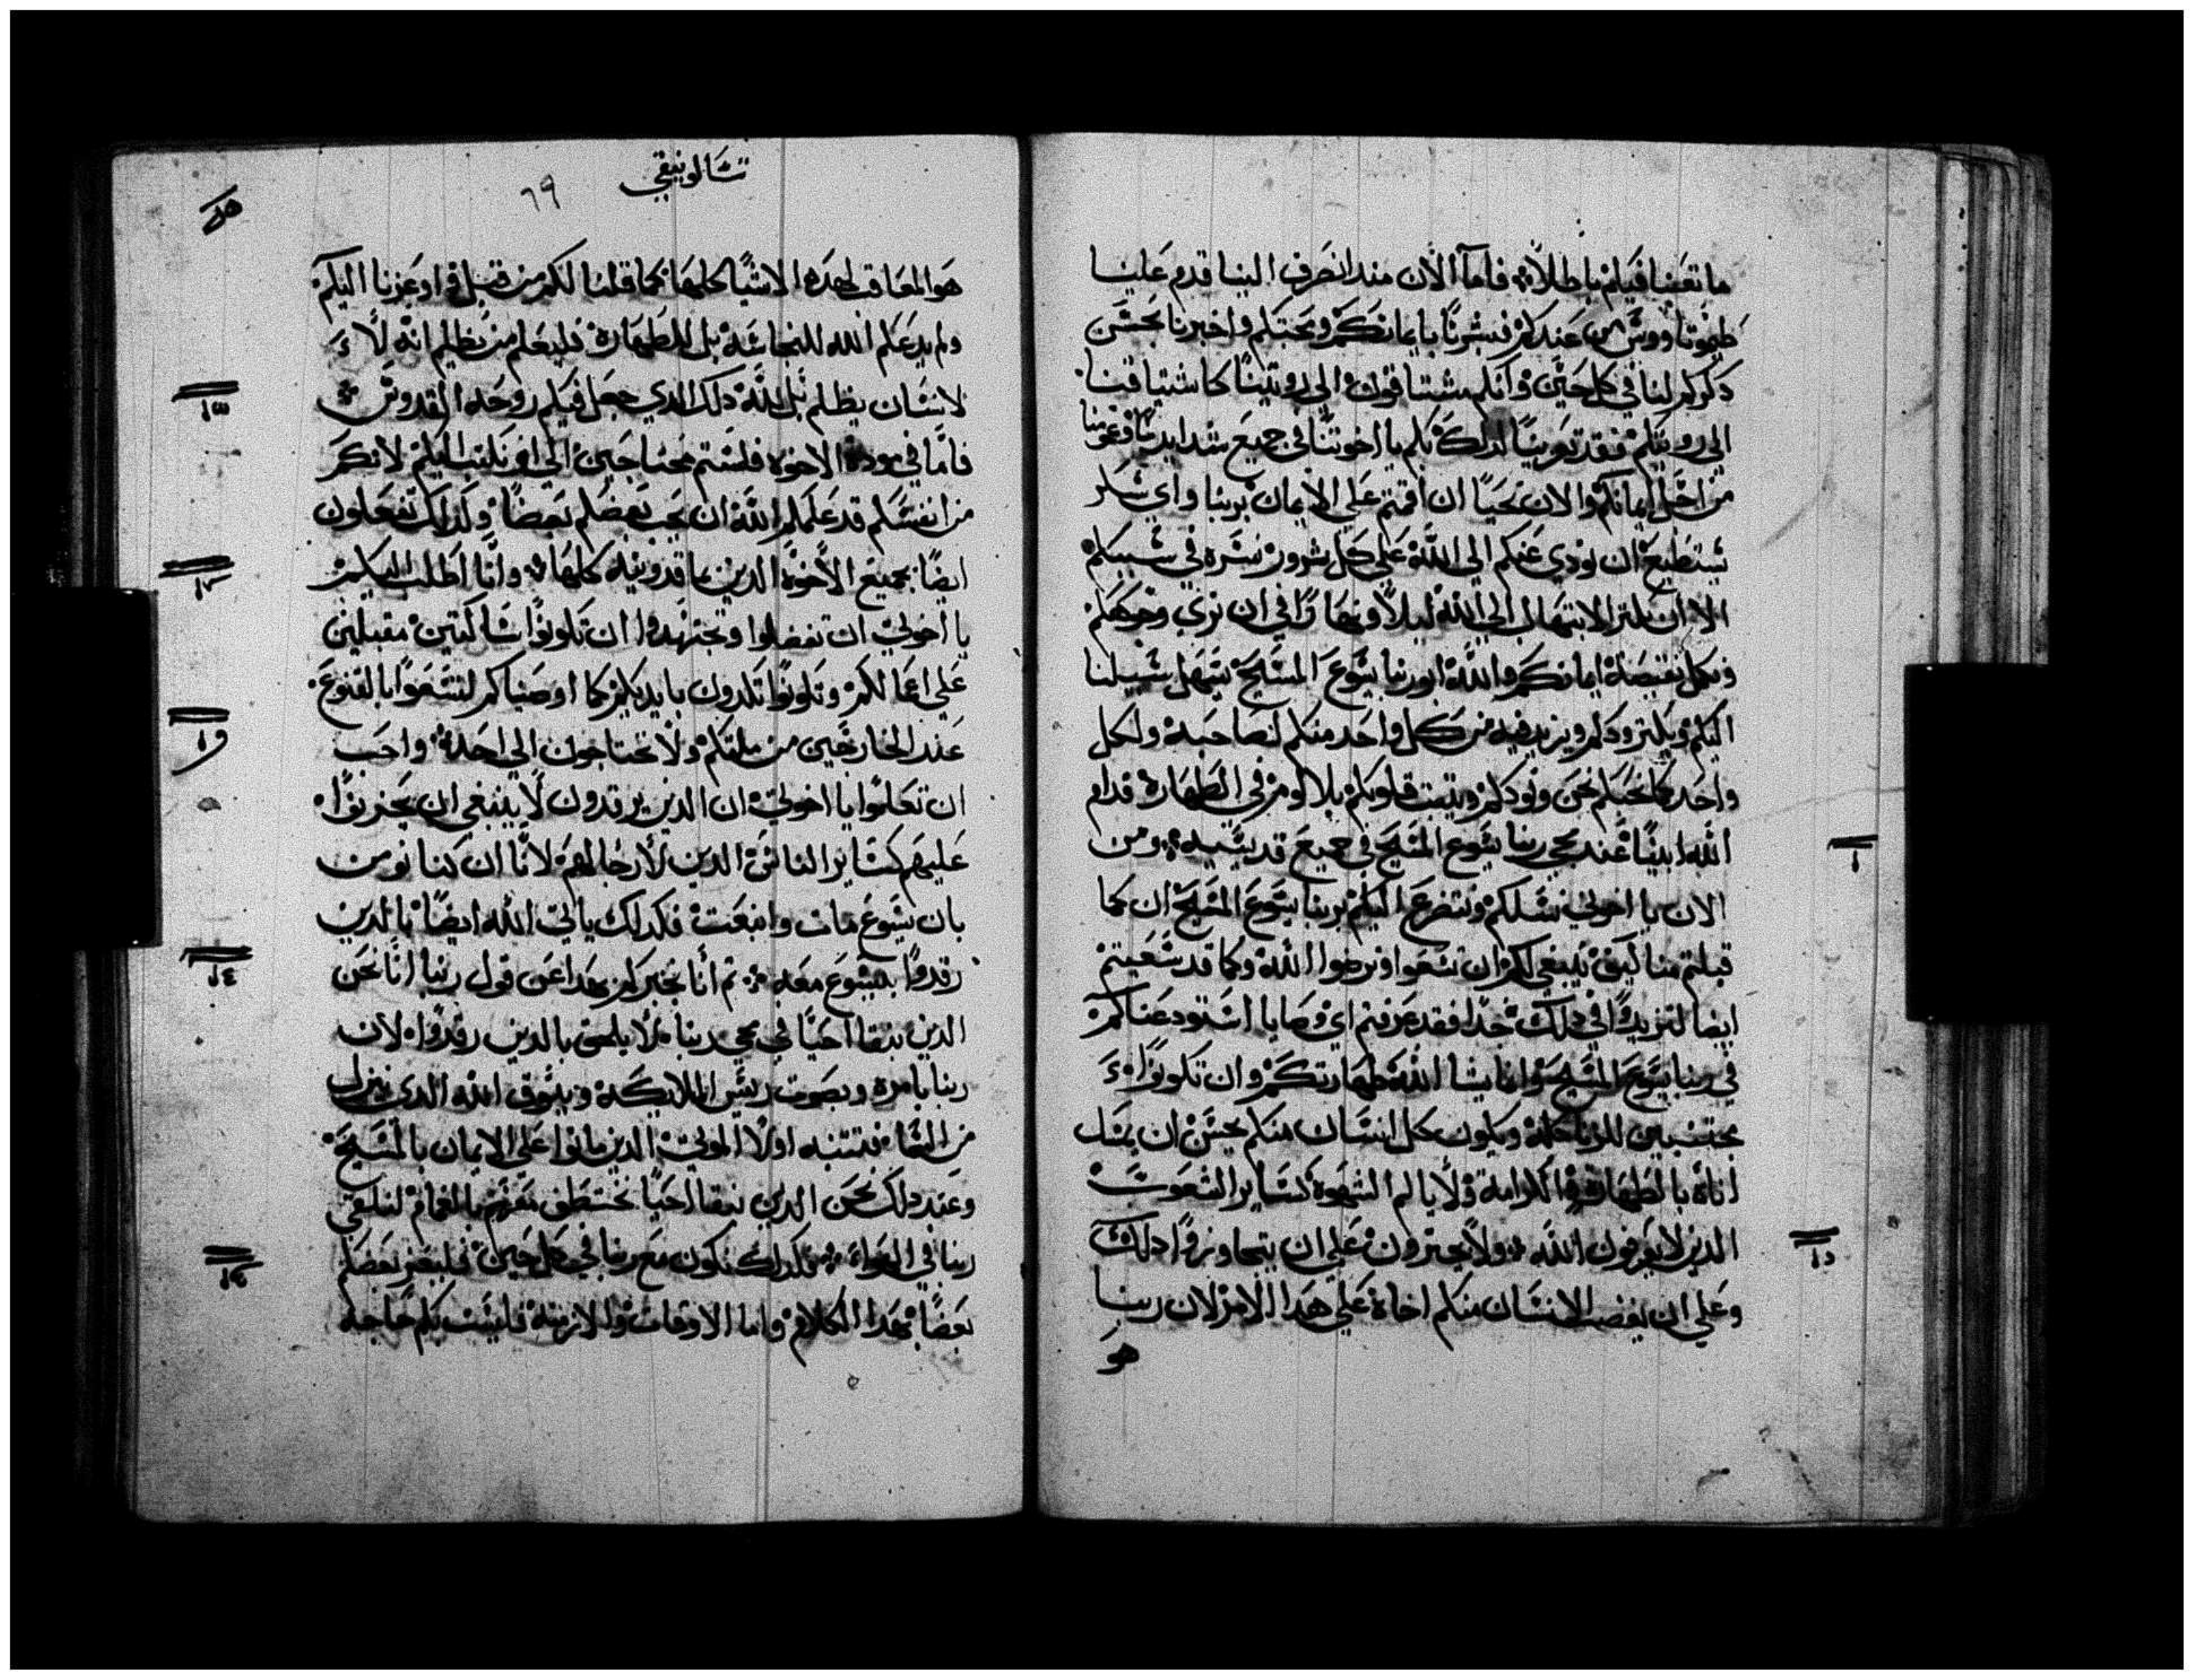 ما تعبنا فيكم باطلا۞ فاما الان مند انصرف الينا قدم علينا
طيموتاووس من عندكم فبشرنا بايمانكم ومحبتكم واخبرنا بحسن
دكركم لنا في كل حين وانكم مشتاقون الي رويتنا كاشتياقنا
الي رويتكم فقد تعزينا لدلك بكم يا اخوتنا في جميع شدايدنا وغمومنا
من اجل ايمانكم والان نحيا ان اقمتم علي الايمان بربنا واي شكر
نستطيع ان نودي عنكم الي الله علي كل سرور نسره في سببكم
الا ان نكتر الابتهال الي الله ليلا ونهارا في ان نري وجوهكم
ونكمل نقيصة ايمانكم والله ابونا ربنا يسوع المسيح يسهل سبيلنا
اليكم ويكتر ودكم ويزيد فيه من كل واحد منكم لصاحبه ولكل
واحد كما نحبكم نحن ونودكم ويتبت قلوبكم بلا لوم في الطهارة قدام
الله ابينا عند مجي ربنا يسوع المسيح في جميع قديسيه۞ ومن
الان يا اخوتي نسلكم ونتضرع اليكم بربنا يسوع المسيح ان كما
قبلتم منا كيف ينبغي لكم ان تسعوا وترضوا الله وكما قد سعيتم
ايضا لتزيدوا في دلك جدا فقد عرفتم اي وصايا استودعناكم
في ربنا يسوع المسيح وانما يشا الله طهارتكم وان تكونوا
مجتنبين للزنا كله ويكون كل انسان منكم يحسن ان يمسك
اناه بالطهارة والكرامة ولا بالم الشهوة كساير الشعوب
الدين لا يعرفون الله ولا يجترون علي ان يتجاوزوا دلك
وعلي ان يغضب الانسان منكم اخاه علي هدا الامر لان ربنا
هو
تسالونيقي
٦٩
هو المعاقب لهده الاشيا كلها كما قلنا لكم من قبل واوعزنا اليكم
ولم يدعكم الله للنجاسة بل للطهارة فليعلم من يظلم انه لا
لانسان يظلم بل لله دلك الدي جعل فيكم روحه القدوس۞
فاما في مودة الاخوه فلستم محتاجين الي ان نكتب اليكم لانكم
من انفسكم قد علمكم الله ان يحب بعضكم بعضا وكدلك تفعلون
ايضا بجميع الاخوة الدين بماقدونيه كلها۞ وانا اطلب اليكم
يا اخوتي ان تفضلوا وتجتهدوا ان تكونوا ساكتين مقبلين
علي اعمالكم وتكونوا تكدون بايديكم كما اوصيناكم لتسعوا بالقنوع
عند الخارجين من ملتكم ولا تحتاجون الي احد واحب
ان تعلموا يا اخوتي ان الدين يرقدون لا ينبغي ان يحزنوا
عليهم كساير الناس الدين لا رجا لهم لانا ان كنا نومن
بان يسوع مات وانبعت فكدلك ياتي الله ايضا بالدين
رقدوا بيسوع معه۞ تم انا نخبركم بهدا عن قول ربنا انا نحن
الدين نبقا احيا في مجي ربنا لا يلحق بالدين رقدوا لان
ربنا بامره وبصوت ريس الملايكه وببوق الله الدي ينزل
من السما فتنتبه اولا الموتي الدين ماتوا علي الايمان بالمسيح
وعند دلك نحن الدين نبقا احيا نختطف معهم بالغمام لنلتقي
ربنا في الهواء۞ فكدلك نكون مع ربنا في كل حين فليعز بعضكم
بعضا بهدا الكلام واما الاوقات والازمنه فليست بكم حاجه